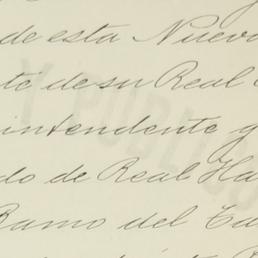 de esta Nueva
te de su Real
intendente g
do de Real Ha
Ramo del Ta